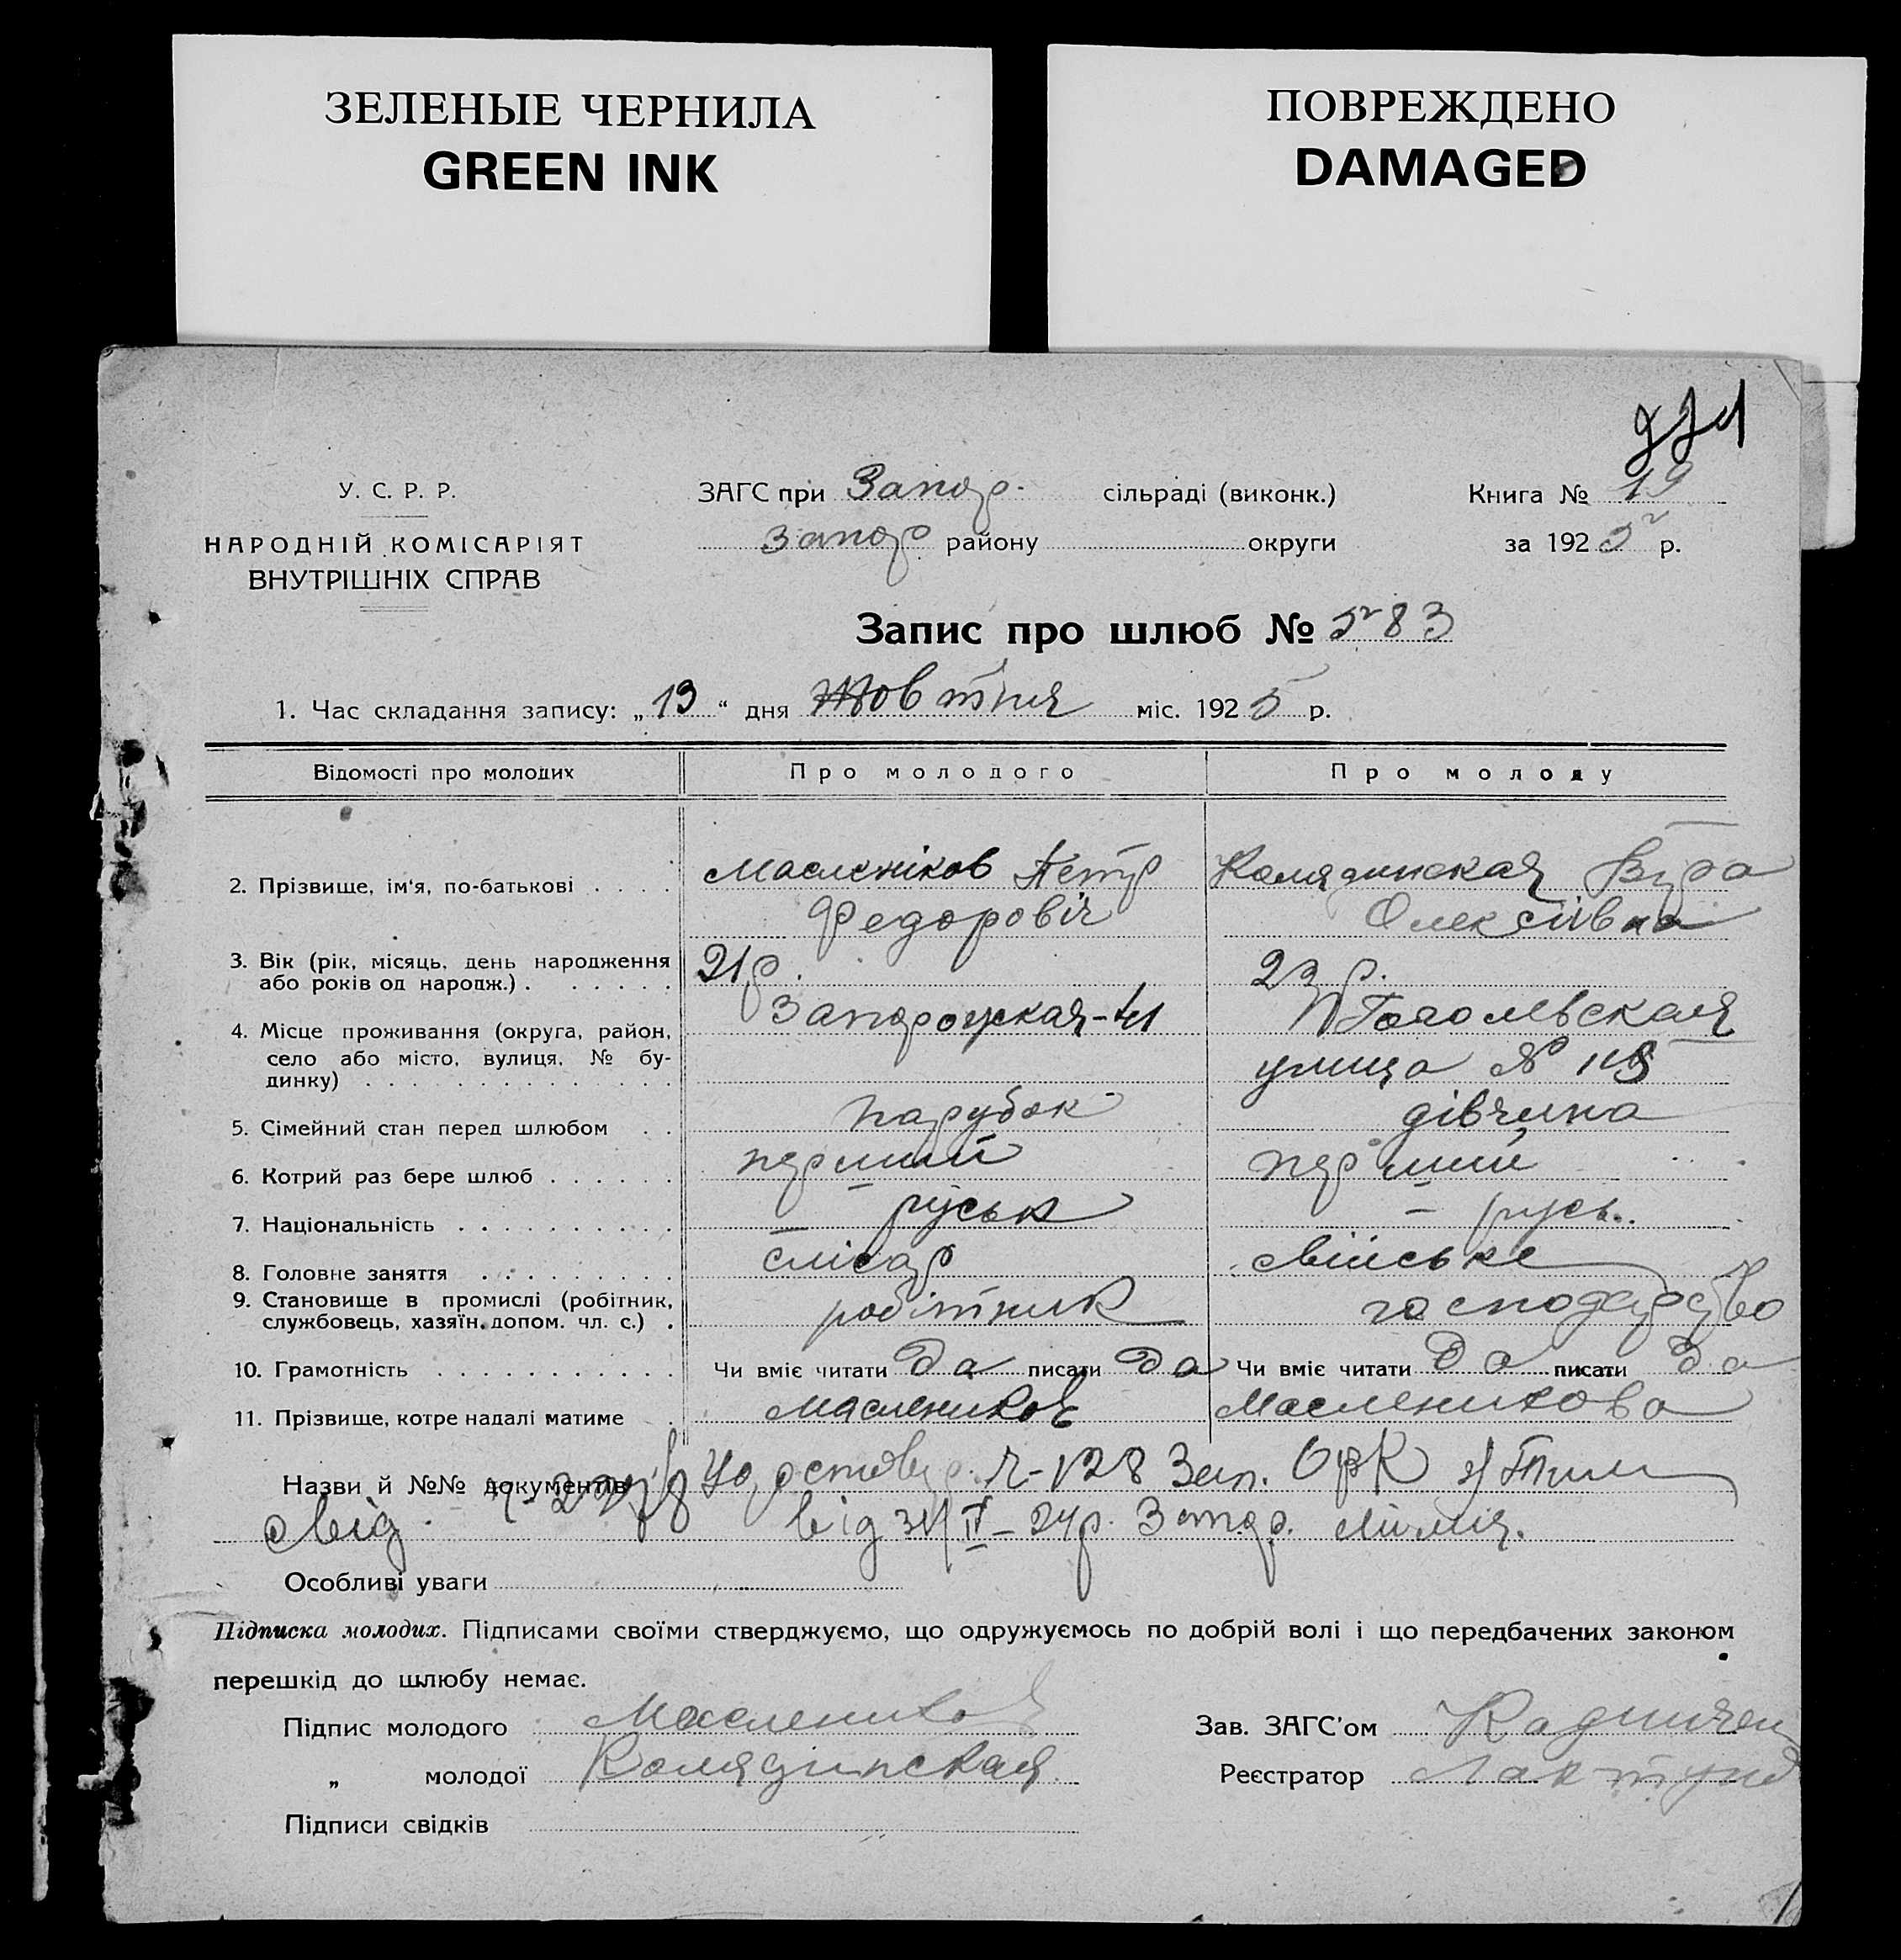 ЗЕЛЕНЫЕ ЧЕРНИЛА
GREEN INK
ПОВРЕЖДЕНО
DAMAGED
У. С. Р. Р.
НАРОДНІЙ КОМІСАРІЯТ
ВНУТРІШНІХ СПРАВ
ЗАГС при Запор. сільраді (виконк.)
Запор району округи
Книга № 19
за 1925 р.
Запис про шлюб № 583
1. Час складання запису: „19“ дня Жовтня міс. 1925 р.
Відомості про молодих Про молодого Про молоду
2. Прізвище, ім‘я, по-батькові . . . . Маслєніков Петр Колядинская Вера
Федоровіч Олексіївна
3. Вік (рік, місяць, день народження 21 р. 23 р.
або років од народж.) . . . . . .
4. Місце проживання (округа, район, Запорожская-41 Гоголевская
село або місто, вулиця, № бу- улица №
динку) . . . . . . . . . . . . . .
5. Сімейний стан перед шлюбом . . парубок дівчина
6. Котрий раз бере шлюб . . . . . . перший перший
7. Національність . . . . . . . . . . руськ русь.
8. Головне заняття . . . . . . . . . слісар
9. Становище в промислі (робітник, робітник господарство
службовець, хазяїн, допом. чл. с.) .
10. Грамотність . . . . . . . . . . . Чи вміє читати Да писати Да Чи вміє читати Да писати Да
11. Прізвище, котре надалі матиме . Маслеников Масленикова
Назви й №№ документів Ч-128 Зап.
свід. від
Особливі уваги
Підписка молодих. Підписами своїми стверджуємо, що одружуємось по добрій волі і що передбачених законом
перешкід до шлюбу немає.
Підпис молодого Маслеников Зав. ЗАГС'ом
„ молодої Колядинская Реєстратор
Підписи свідків